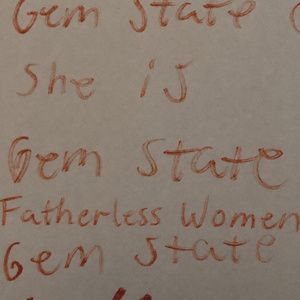 Gem State
She is
Gem State
Fatherless Women
Gem State